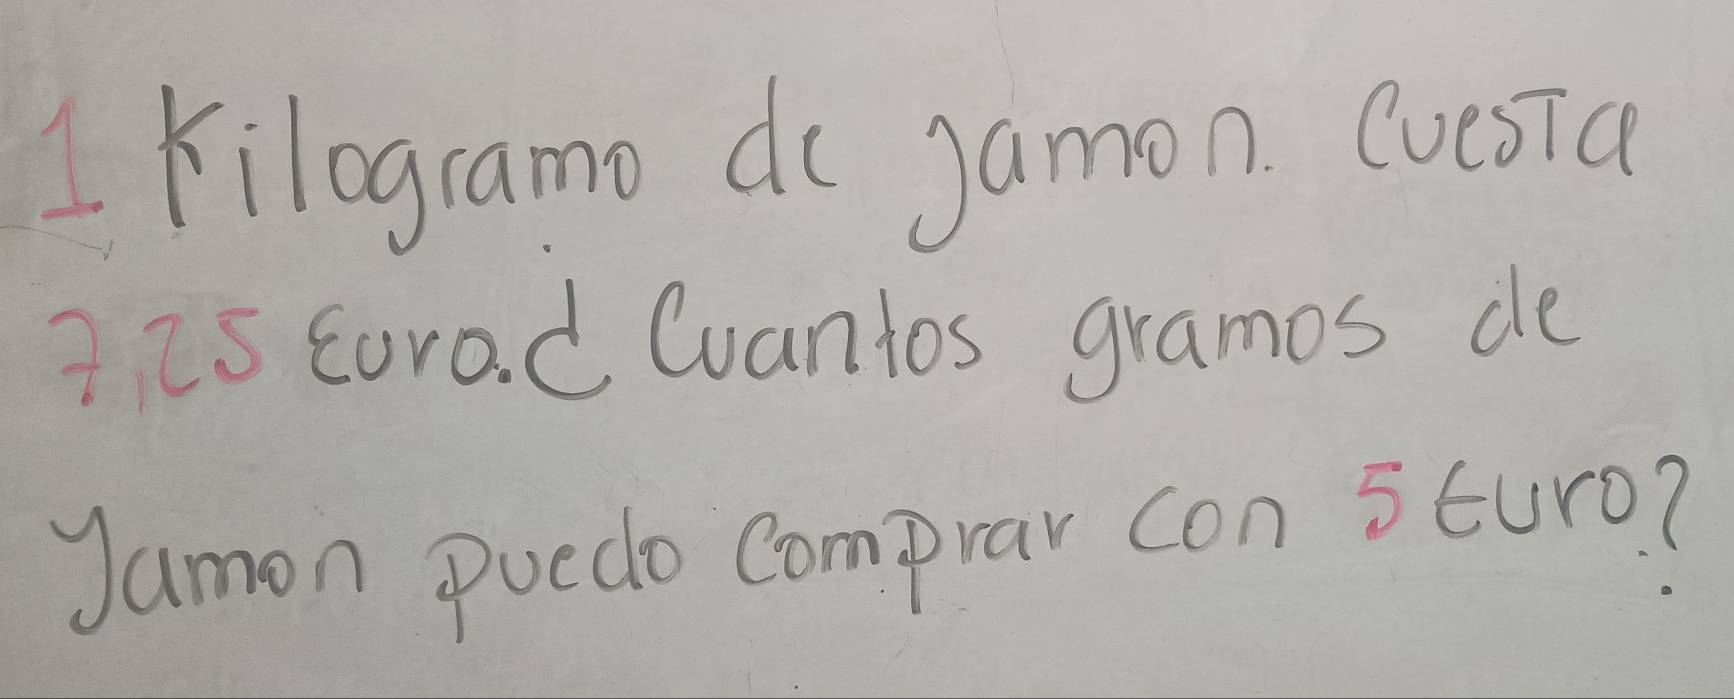 1 Kilogramo de jamon. Cuesta
7,25 Euro. ¿ Cuantos gramos de
Jamon puedo Comprar con 5 Euro?